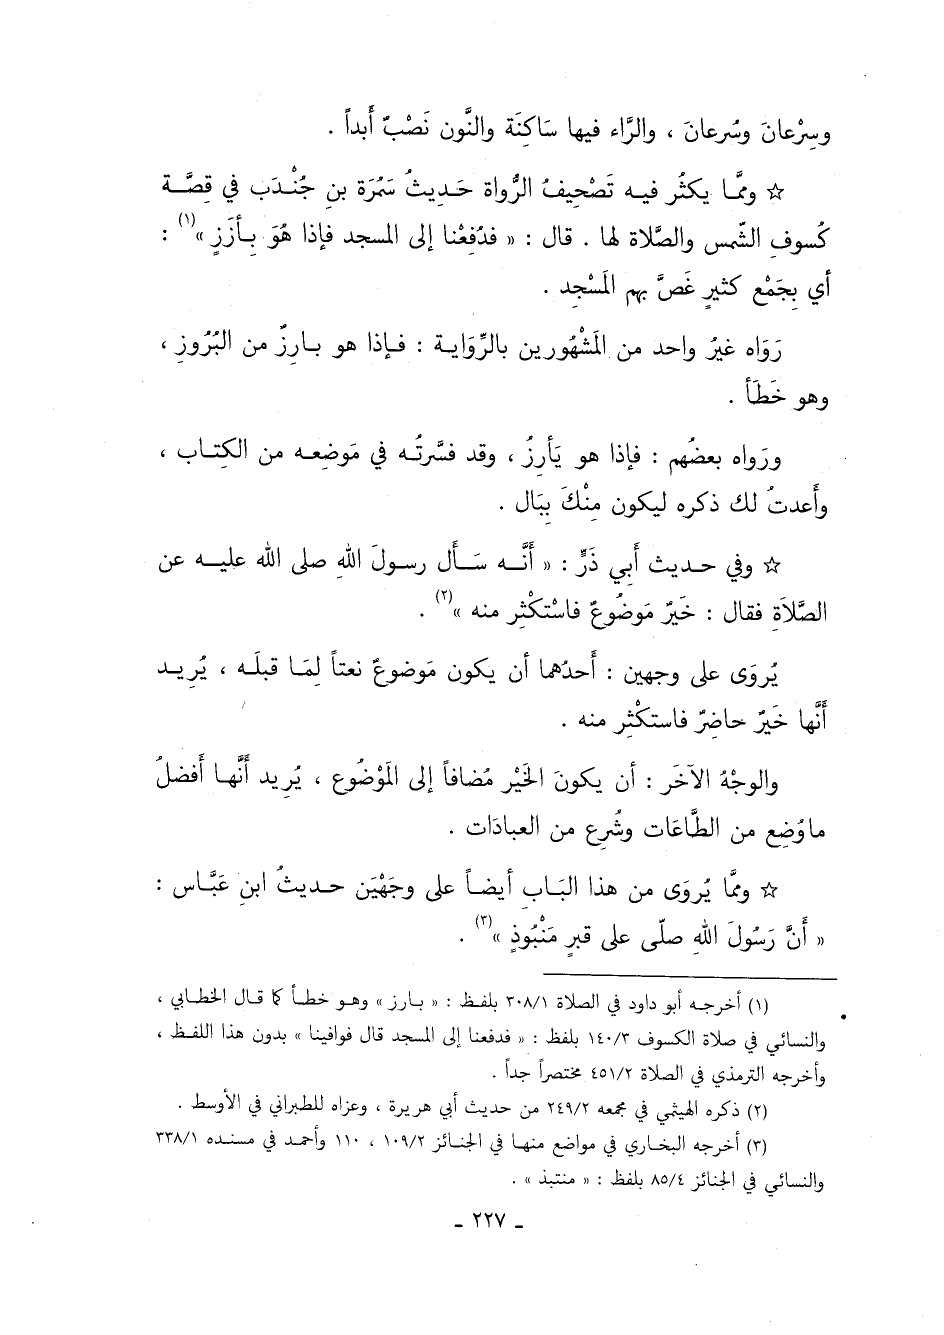 وسِرْعانَ وسُرعانَ ، والرَّاء فيها سَاكِنَة والنُّون نَصْبٌ أَبداً .
☆ وممَّا يكثُر فيـه تَصْحيفُ الرُّواة حَـديثُ سَمُرَة بنِ جُنْـدَب في قِصَّـة
كُسوفِ الشَّمس والصَّلاة لها . قال : « فدُفِعْنا إلى المسجد فإذا هُوَ بـأَزَزٍ »(١) :
أي بِجَمْع كثيرٍ غَصَّ بهم المَسْجِد .
رَوَاه غيرُ واحد من المَشْهُورين بالرِّوَايـة : فـإذا هو بـارزٌ من البُرُوزِ ،
وهو خَطَأ .
ورَواه بعضُهم : فإذا هو يَأرِزُ ، وقد فسَّرتُـه في مَوضِعه من الكِتـاب ،
وأَعدتُ لك ذكره ليكون مِنْكَ بِبَال .
☆ وفي حـديث أَبي ذَرٍّ : « أَنَّـه سَـأَل رسـولَ اللهِ صلى الله عليـه عن
الصَّلاَةِ فقال : خَيرٌ مَوضُوعٌ فاسْتكْثِر منه »(٢) .
يُروَى على وجهين : أَحدُهما أن يكون مَوضوعٌ نعتاً لِمَا قبلَـه ، يُرِيـد
أَنَّها خَيرٌ حاضِرٌ فاستكْثِر منه .
والوجْهُ الآخَر : أن يكونَ الخَيْر مُضافاً إلى المَوْضُوع ، يُريد أنَّها أَفضلُ
ماوُضِع من الطَّاعَات وشُرِع من العبادَات .
☆ وممَّا يُروَى من هذا البَاب أيضـاً على وجَهْيَن حـديثُ ابنِ عَبَّاس :
« أَنَّ رَسُولَ اللهِ صلّى على قبرٍ مَنْبُوذٍ »(٣) .
(١) أخرجـه أبو داود في الصلاة ٣٠٨/١ بلفـظ : « بـارز » وهـو خطـأ كما قـال الخطـابي ،
والنسائي في صلاة الكسوف ١٤٠/٣ بلفظ : « فدفعنا إلى المسجد قال فوافينا » بدون هذا اللفـظ ،
وأخرجه الترمذي في الصلاة ٤٥١/٢ مختصراً جداً .
(٢) ذكره الهيثمي في مجمعه ٢٤٩/٢ من حديث أبي هريرة ، وعزاه للطبراني في الأوسط .
(٣) أخرجه البخـاري في مواضع منهـا في الجنائز ١٠٩/٢ ، ١١٠ وأحمـد في مسنـده ٣٣٨/١
والنسائي في الجنائز ٨٥/٤ بلفظ : « منتبذ » .
ـ ٢٢٧ ـ